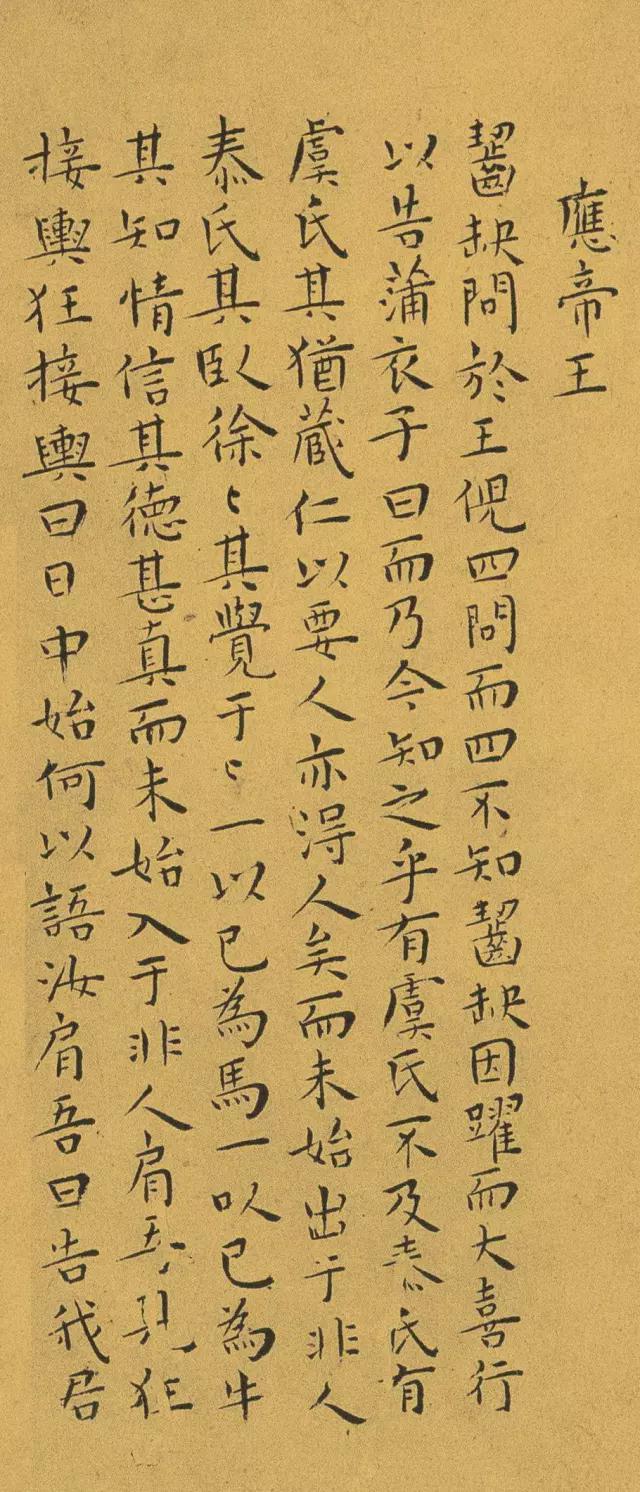 應帝王
齧缺問於王倪四問而四不知齧缺因躍而大喜行
以告蒲衣子曰而乃今知之乎有虞氏不及泰氏有
虞氏其猶蔵仁以要人亦得人矣而未始出于非人
泰氏其臥徐〻其覺于〻一以已為馬一以已為牛
其知情信其德甚真而未始入于非人肩吾見狂
接輿狂接輿曰日中始何以語汝肩吾曰告我君